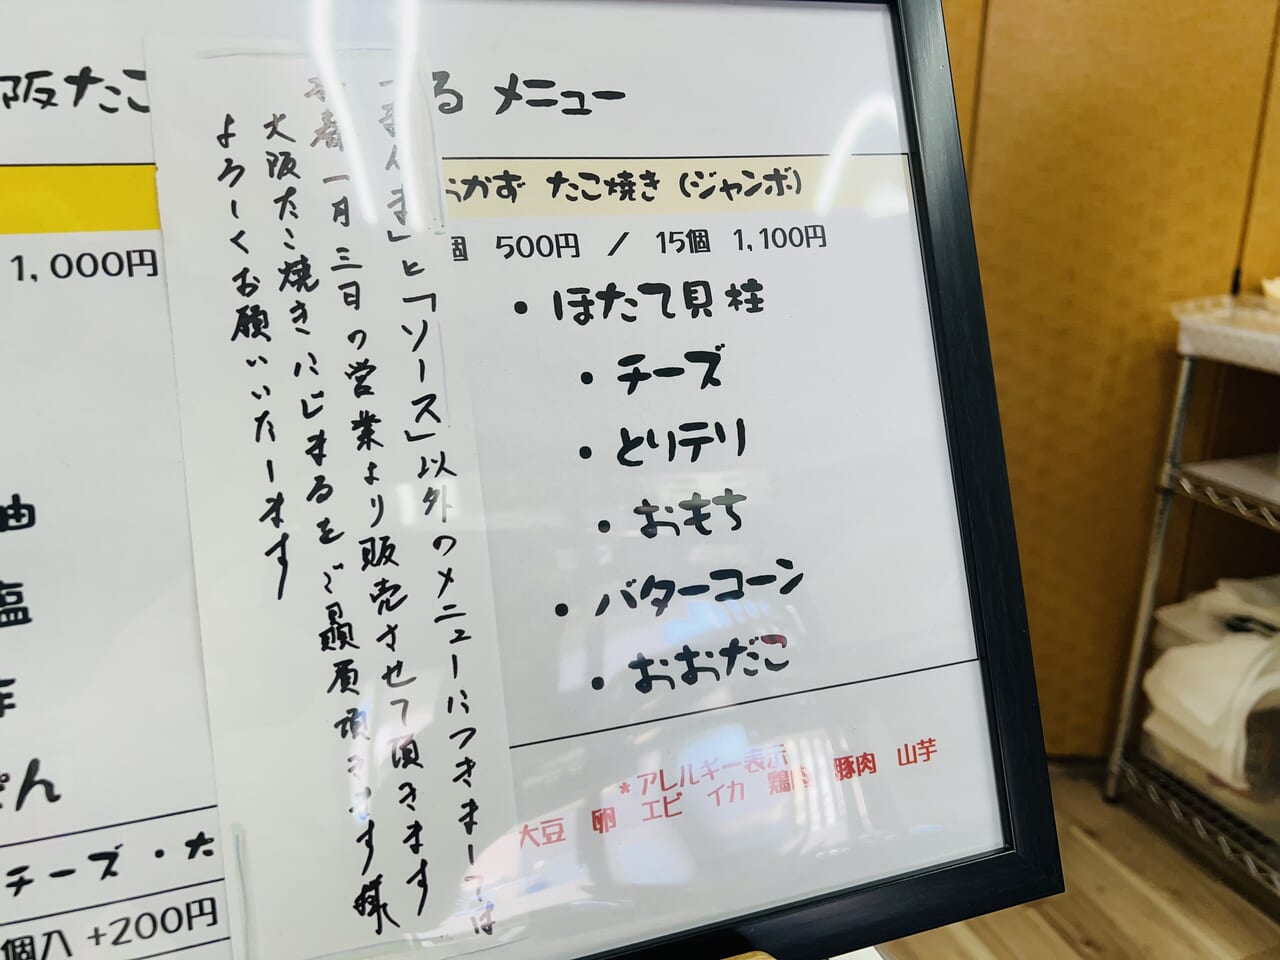 阪たこ
る メニュー
1,000円
おかず たこ焼き (ジャンボ)
個 500円 / 15個 1,100円
・ほたて貝柱
・チーズ
・とりテリ
・おもち
・バターコーン
・おおだこ
*アレルギー表示
大豆 卵 エビ イカ 鶏肉 豚肉 山芋
「まんま」と「ソース」以外のメニューにつきましては
一月三日の営業より販売させて頂きます
大阪たこ焼きにじまるをご贔屓頂きます様
よろしくお願いいたします
油
塩
ぽん
チーズ・た
個入 +200円